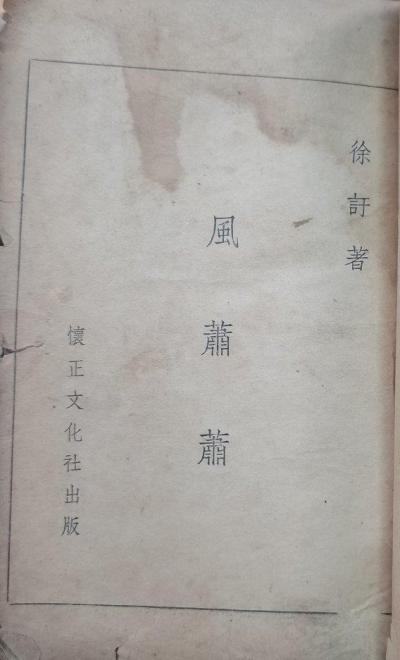 徐訏著
風蕭蕭
懷正文化社出版